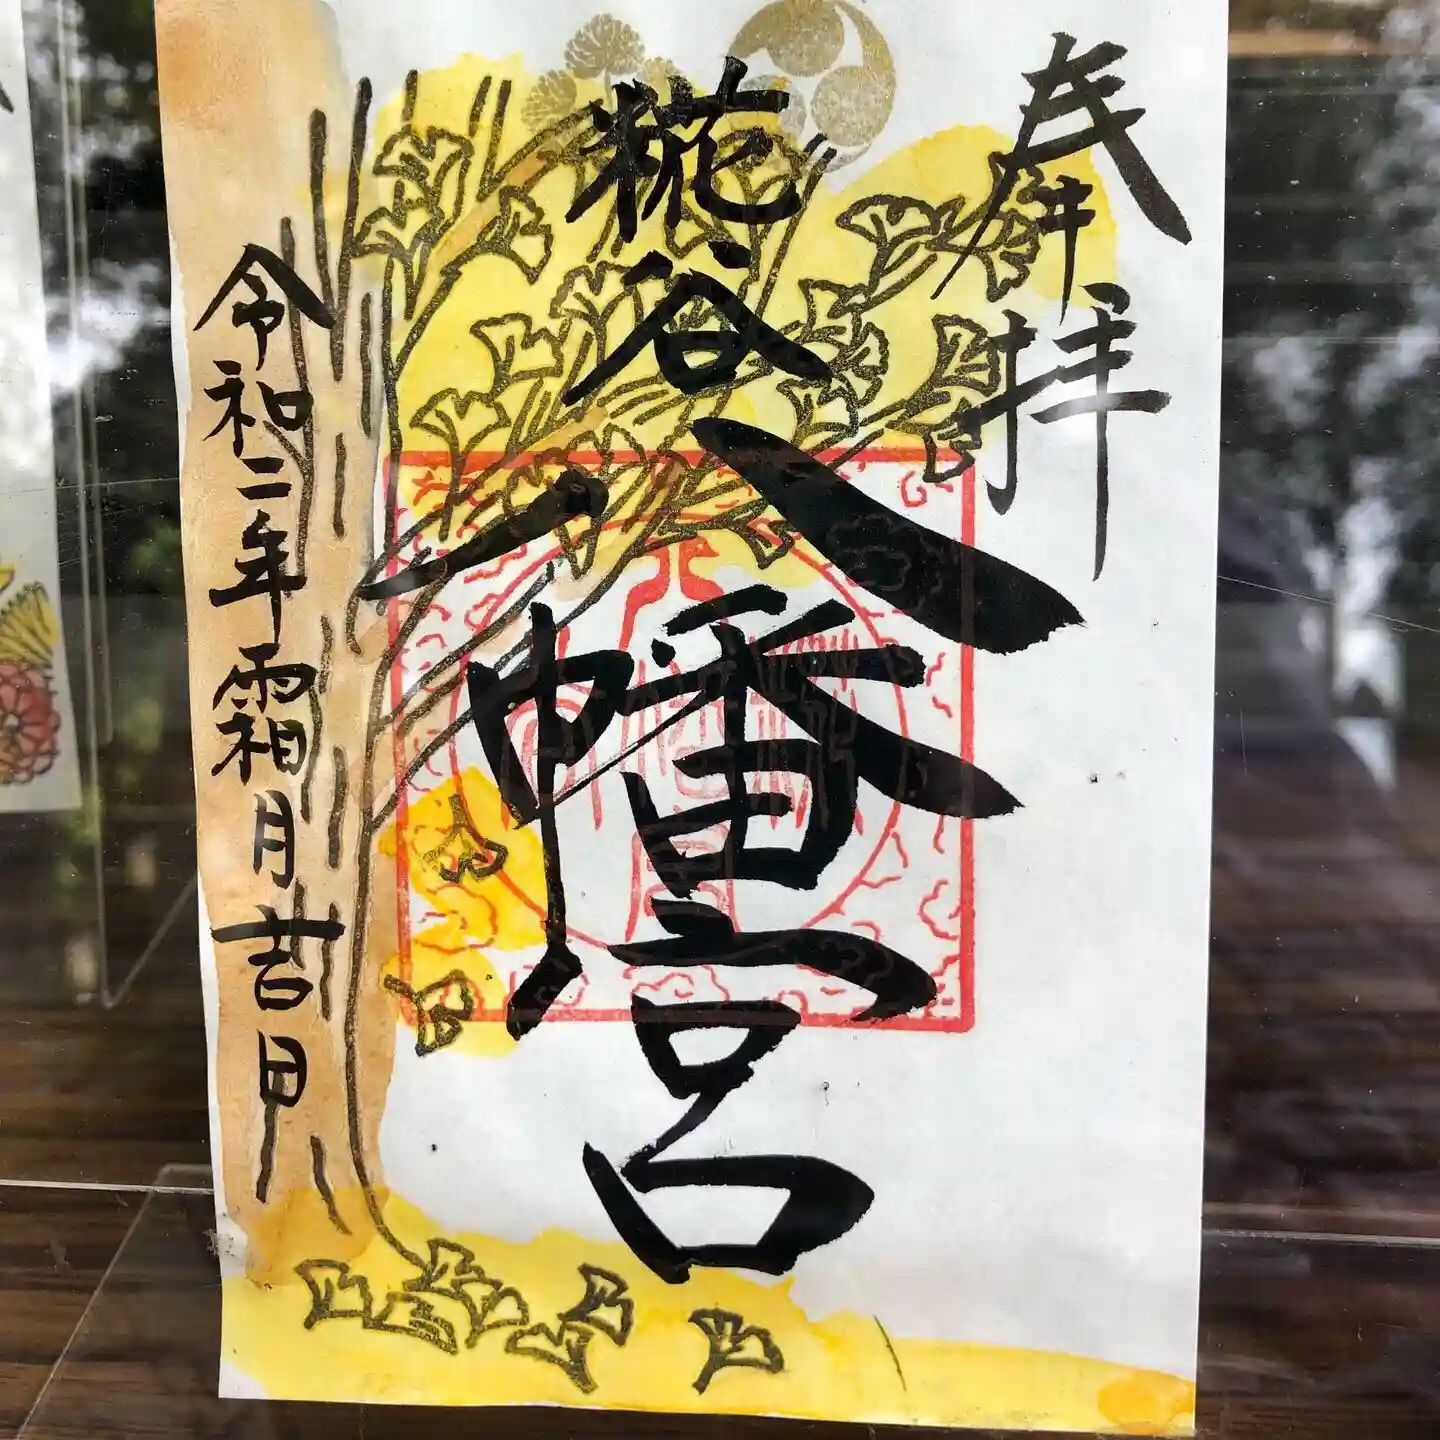 奉拝
糀谷八幡宮
令和二年霜月吉日